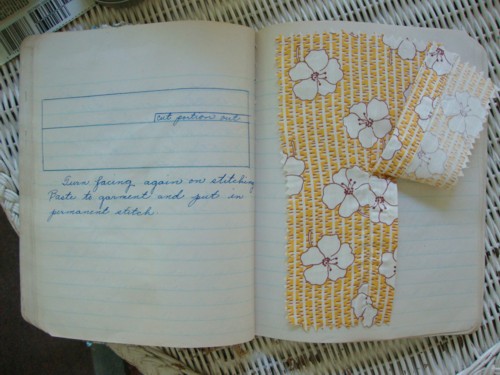 cut portion out
Turn facing again on stitching
Paste to garment and put in
permanent stitch